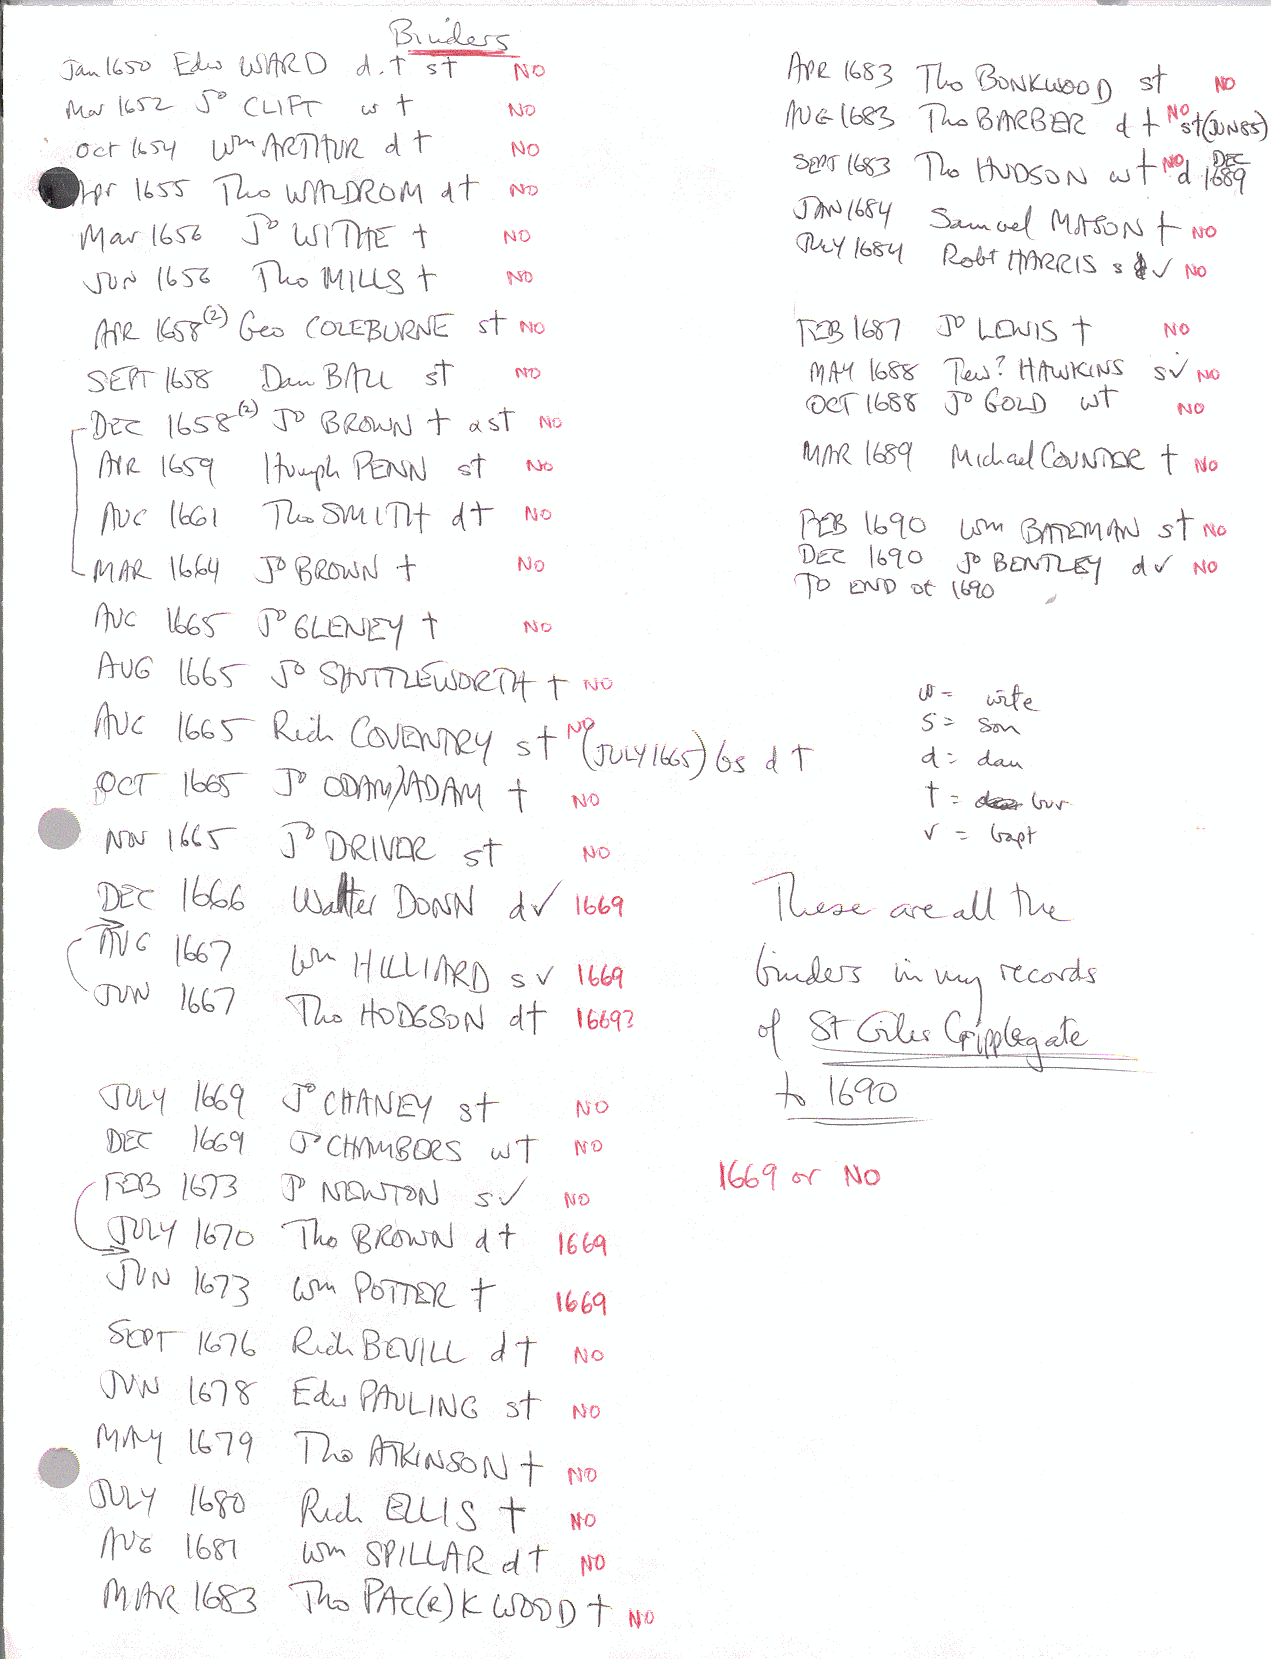 Binders
Jan 1650 Edw WARD d.† st NO
Mar 1652 Jo CLIFT w † NO
Oct 1654 Wm ARTHUR d † NO
Apr 1655 Tho WALDROM d † NO
Mar 1656 Jo WITHE † NO
JUN 1656 Tho MILLS † NO
APR 1658 (2) Geo COLEBURNE s† NO
SEPT 1658 Dan BALL s† NO
DEC 1658 (2) Jo BROWN † & s† NO
APR 1659 Humph PENN s† NO
AUG 1661 Tho SMITH d† NO
MAR 1664 Jo BROWN † NO
AUG 1665 Jo GLENEY † NO
AUG 1665 Jo SHUTTLEWORTH † NO
AUG 1665 Rich COVENTRY s† NO (JULY 1665) bs d †
OCT 1665 Jo ODAM/ADAM † NO
NOV 1665 Jo DRIVER s† NO
DEC 1666 Walter DONN d✓ 1669
AUG 1667 Wm HILLIARD s✓ 1669
JUN 1667 Tho HODGSON d† 1669?
JULY 1669 Jo CHANEY s† NO
DEC 1669 Jo CHAMBERS w† NO
FEB 1673 Jo NEWTON s✓ NO
JULY 1670 Tho BROWN d† 1669
JUN 1673 Wm POTTER † 1669
SEPT 1676 Rich BEVILL d† NO
JUN 1678 Edw PAULING s† NO
MAY 1679 Tho ATKINSON † NO
JULY 1680 Rich ELLIS † NO
AUG 1681 Wm SPILLAR d† NO
MAR 1683 Tho PAC(R)KWOOD † NO
APR 1683 Tho BONKWOOD s† NO
AUG 1683 Tho BARBER d † NO s†(JUN85)
SEPT 1683 Tho HUDSON w† NO d DEC 1689
JAN 1684 Samuel MASON † NO
JULY 1684 Robt HARRIS s ✓ NO
FEB 1687 Jo LEWIS † NO
MAY 1688 Tew? HAWKINS s✓ NO
OCT 1688 Jo GOLD w† NO
MAR 1689 Michael COUNTER † NO
FEB 1690 Wm BATEMAN s† NO
DEC 1690 Jo BENTLEY d✓ NO
TO END of 1690
w = wife
s = son
d = dau
† = bur
✓ = bapt
These are all the
binders in my records
of St Giles Cripplegate
to 1690
1669 or NO